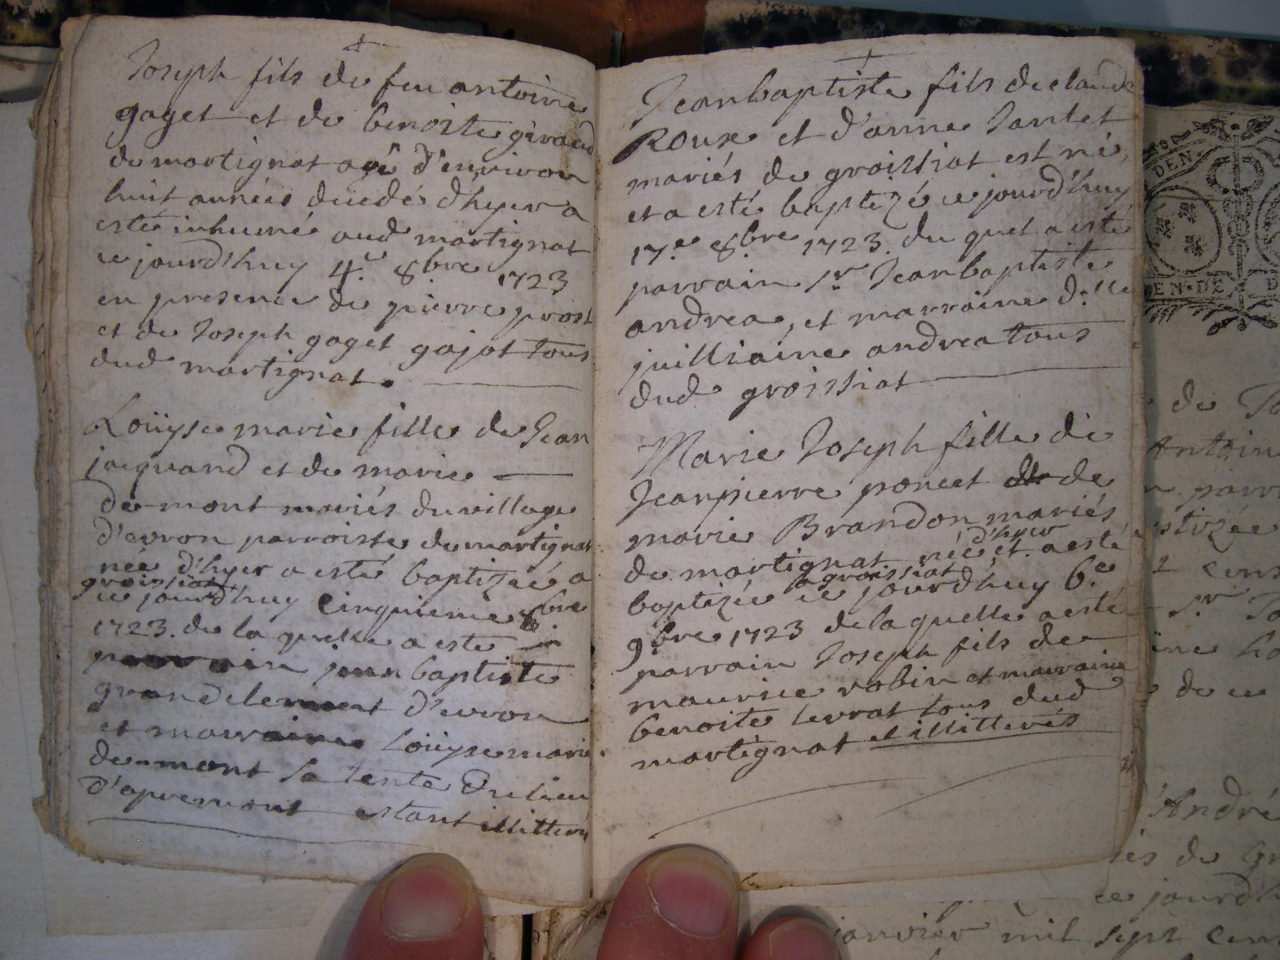 Joseph fils de feu antoine
gaget et de benoite giraud
de martignat agé d'environ
huit années decedé d'hyer a
esté inhumé aud martignat
ce jourd'huy 4.e 8bre 1723
en presence de pierre prost
et de Joseph gaget gajot tous
dud martignat.
Loüyse marie fille de Jean
jacquand et de marie
demont mariés du village
d'evron parroisse de martignat
née d'hyer a esté baptizée a
groissiat
ce jourd'huy cinquieme 8bre
1723. de la quelle a esté
parrain jean baptiste
grandclement d'evron
et marraine Loüyse marie
demont sa tente du lieu
d'apremont estant illitteré
Jeanbaptiste fils de claude
Roux et d'anne Tantet
mariés de groissiat est né,
et a esté baptizé ce jourd'huy
17.e 8bre 1723. du quel a esté
parrain sr Jeanbaptiste
andrea, et marraine d.lle
juilliaine andrea tous
dud groissiat
Marie Joseph fille de
Jeanpierre poncet de
marie Brandon mariés
d'hyer
de martignat née et a esté
a groissiat
baptizée ce jourd'huy 6.e
9bre 1723 de la quelle a esté
parrain Joseph fils de
maurice robin et marraine
benoite levrat tous dud
martignat et illitterés
DEN
EN·DE D
de
Antoin
parr
tizée
cens
sr
ine
de ce
d'André
iés de Gr
ce jourd'h
janvier mil sept cens